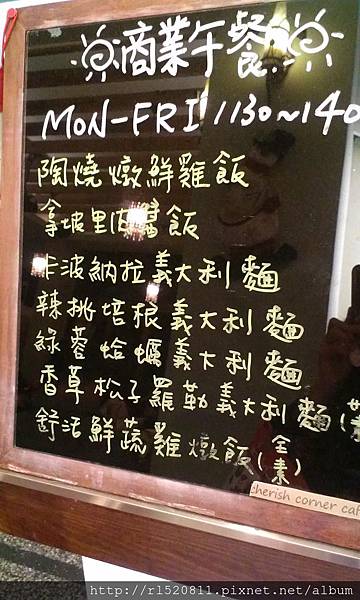 商業午餐
MON-FRI 1130~140
陶燒燉鮮雞飯
拿坡里肉醬飯
卡波納拉義大利麵
辣桃培根義大利麵
綠蓉蛤蠣義大利麵
香草松子羅勒義大利麵(
舒活鮮蔬雞燉飯(全素)
cherish corner caf
http://r1520811.pixnet.net/album